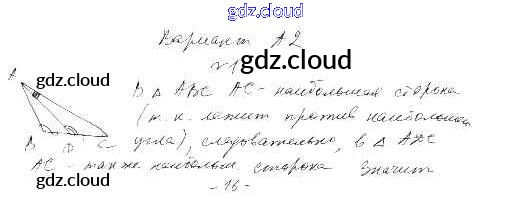 gdz.cloud
Вариант А2
gdz.cloud
№1
A
gdz.cloud
В Δ ABC AC - наибольшая сторона
(т. к. лежит против наибольшего
B D C
угла), следовательно, в Δ ADC
gdz.cloud
AC - также наибольш. сторона Значит
gdz.cloud
- 16 -